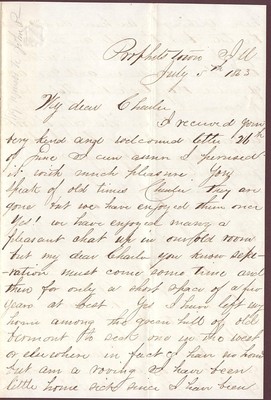 Prophetstown Ill
July 5th 1863
My dear Charlie
I received your
very kind and welcomed letter 26th
of June &
it with much pleasure. You
speak of old times Charlie they are
gone but we have enjoyed them once
Yes! we have enjoyed many a
pleasant chat up in our old room
but my dear Charlie you know sepe-
ration must come some time and
this for only a short space of a few
years at best. Yes I have left my
home among the green hills of old
Vermont to seek one in the west
or elsewhere in fact I have no home
but am a roving & have been
little home sick since I have been